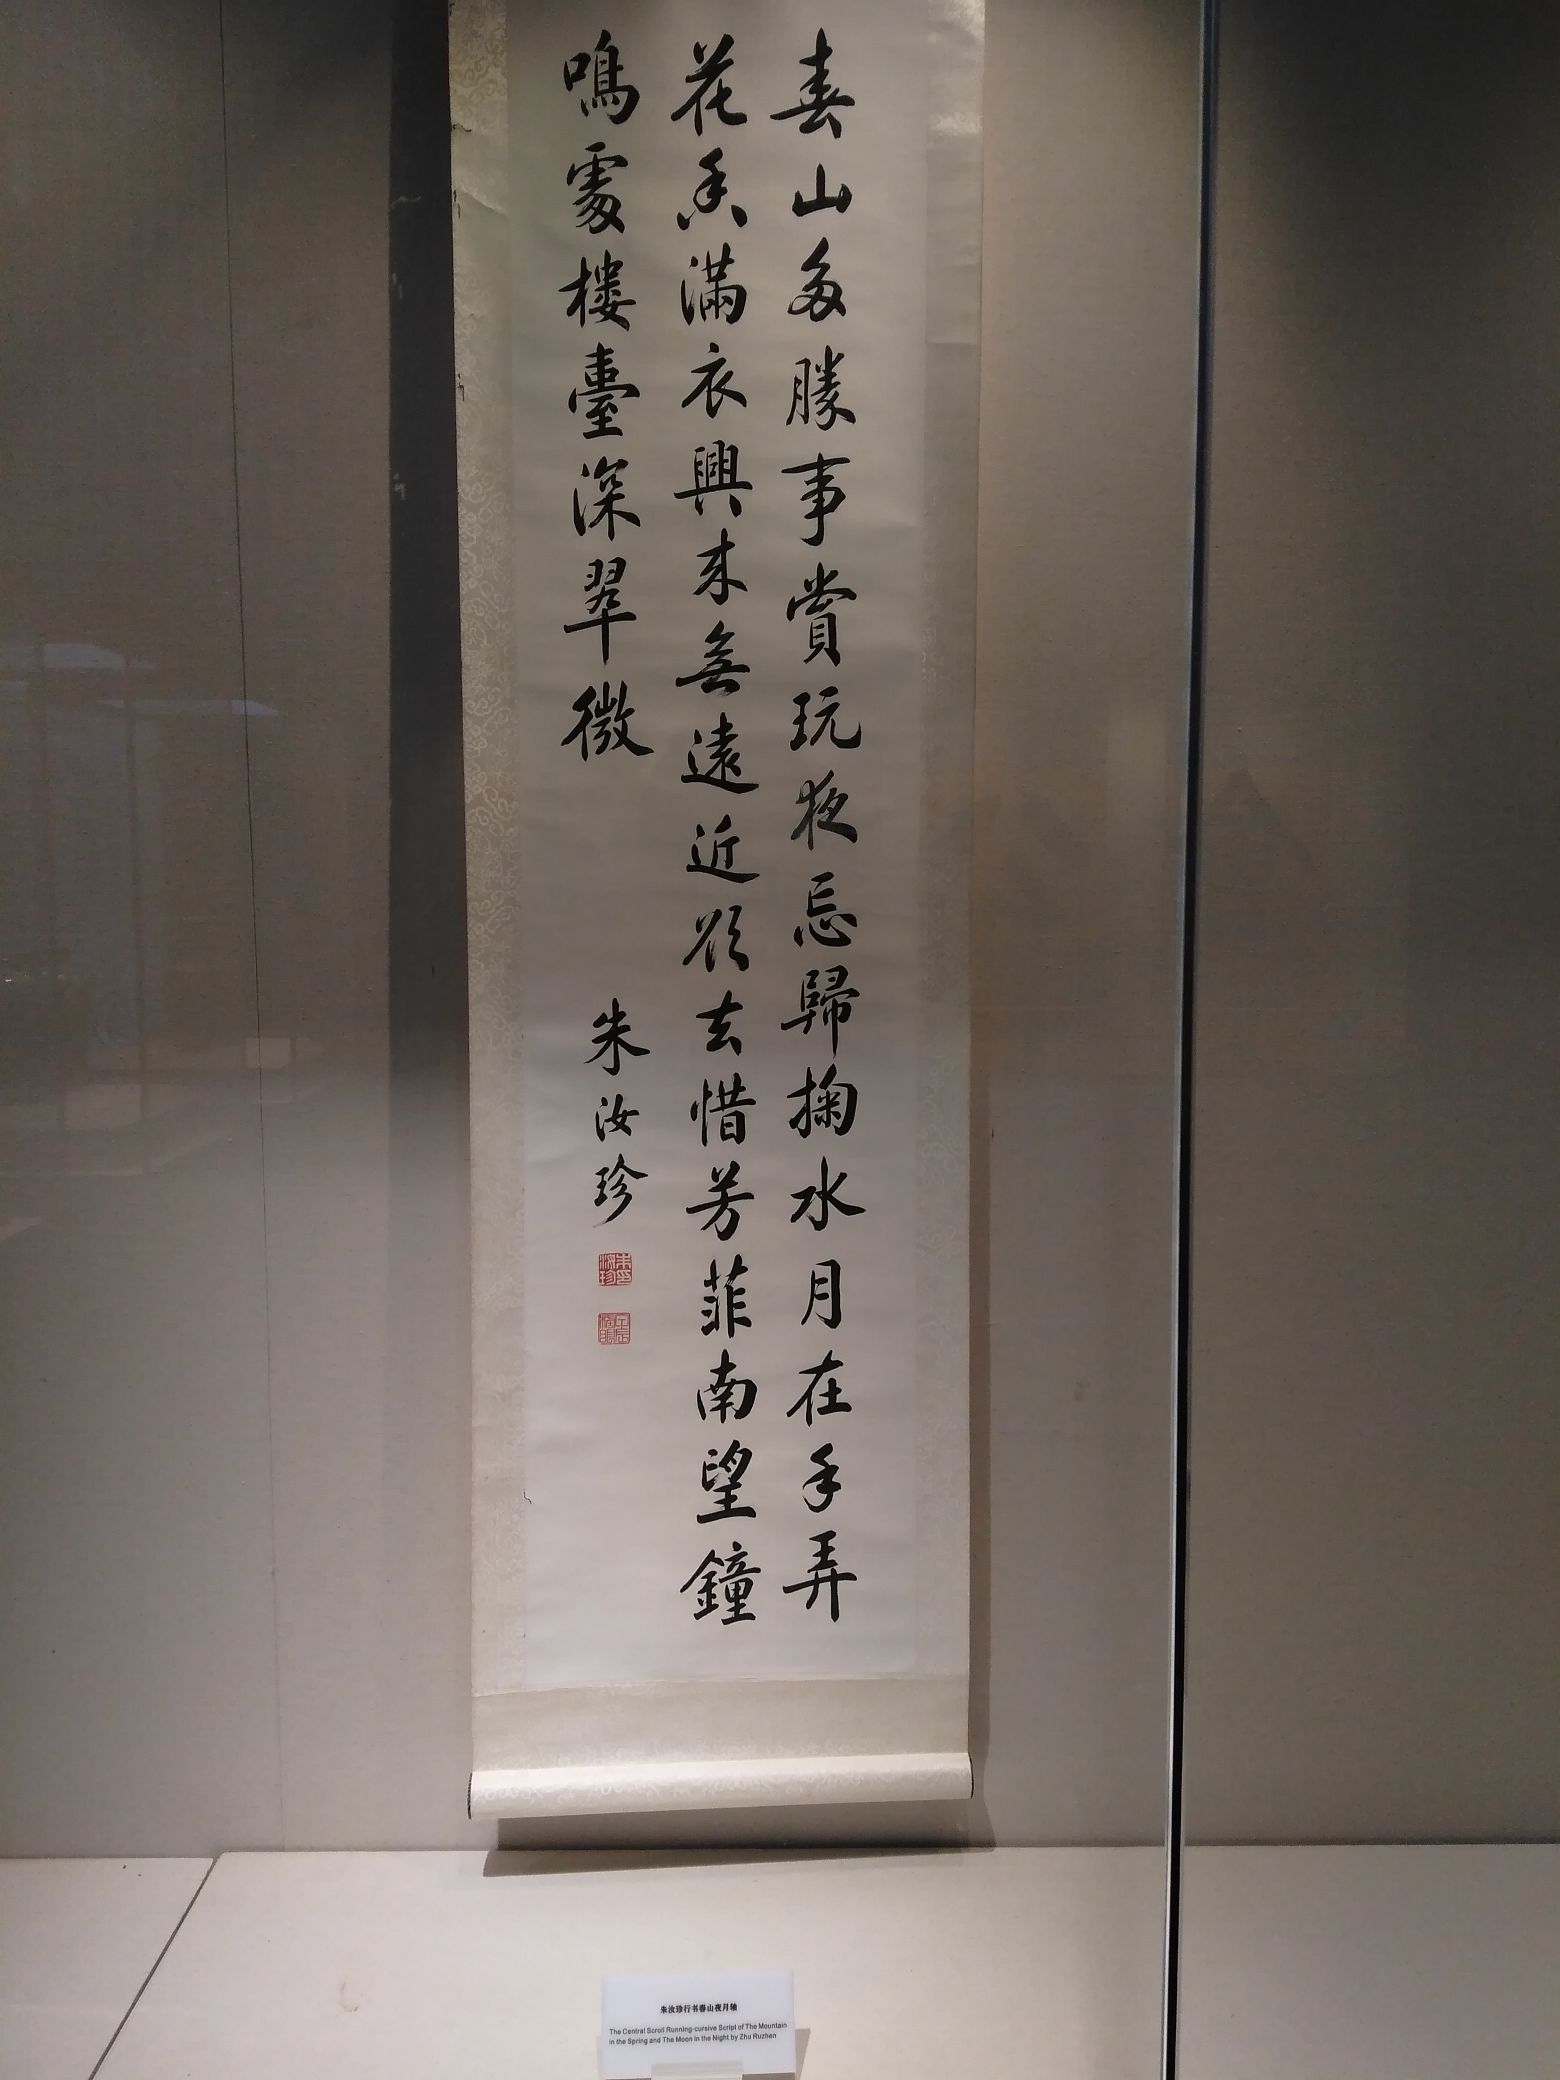 春山多勝事賞玩夜忘歸掬水月在手弄
花香滿衣興來無遠近欲去惜芳菲南望鐘
鳴處樓臺深翠微
朱汝珍
朱汝珍行书春山夜月轴
The Central Scroll Running-cursive Script of The Mountain
in the Spring and The Moon in the Night by Zhu Ruzhen